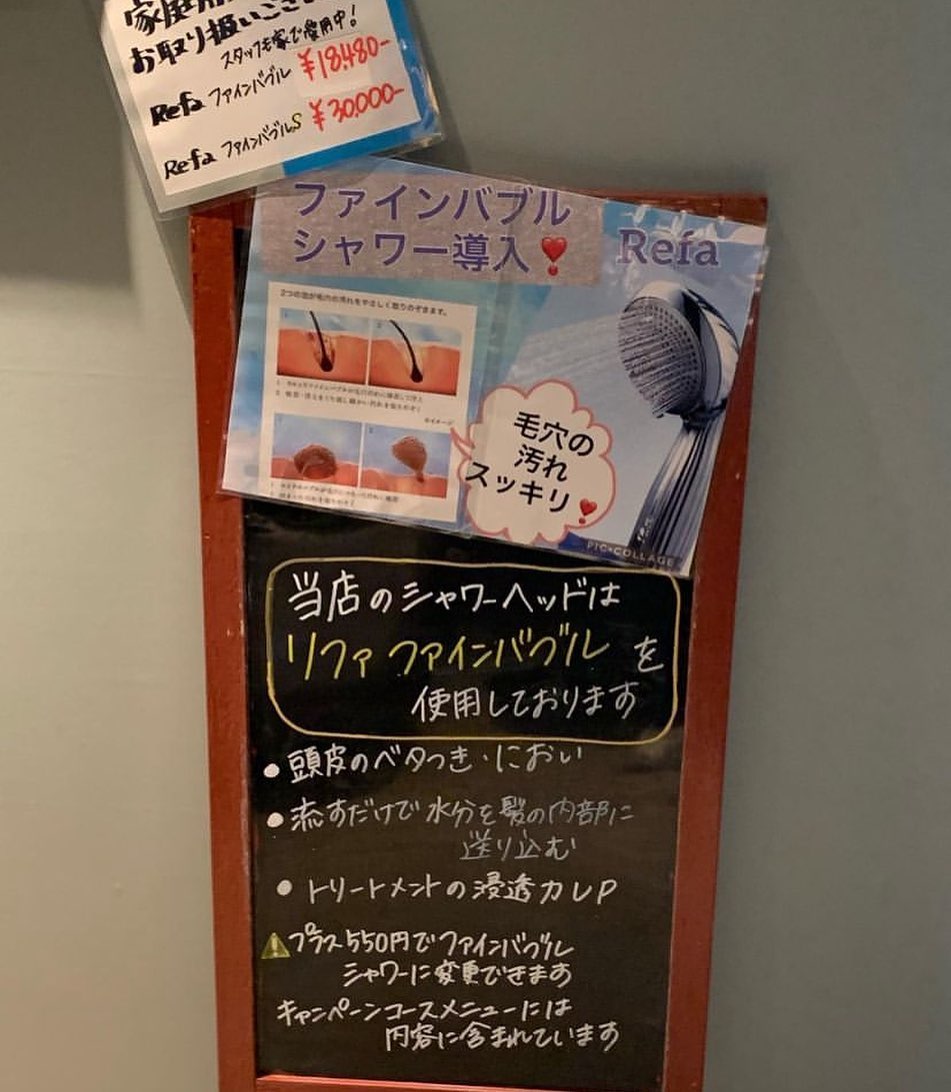 家庭用
お取り扱いござい
スタッフも家で愛用中！
Refa ファインバブル ¥18,480-
Refa ファインバブルS ¥30,000-
ファインバブル
シャワー導入❣
Refa
2つの泡が毛穴の汚れをやさしく取りのぞきます。
1
2
毛穴の
汚れ
スッキリ❣
PIC•COLLAGE
当店のシャワーヘッドは
リファ ファインバブル を
使用しております
• 頭皮のベタつき・におい
• 流すだけで水分を髪の内部に
送り込む
• トリートメントの浸透力UP
⚠プラス550円でファインバブル
シャワーに変更できます
キャンペーンコースメニューには
内容に含まれています